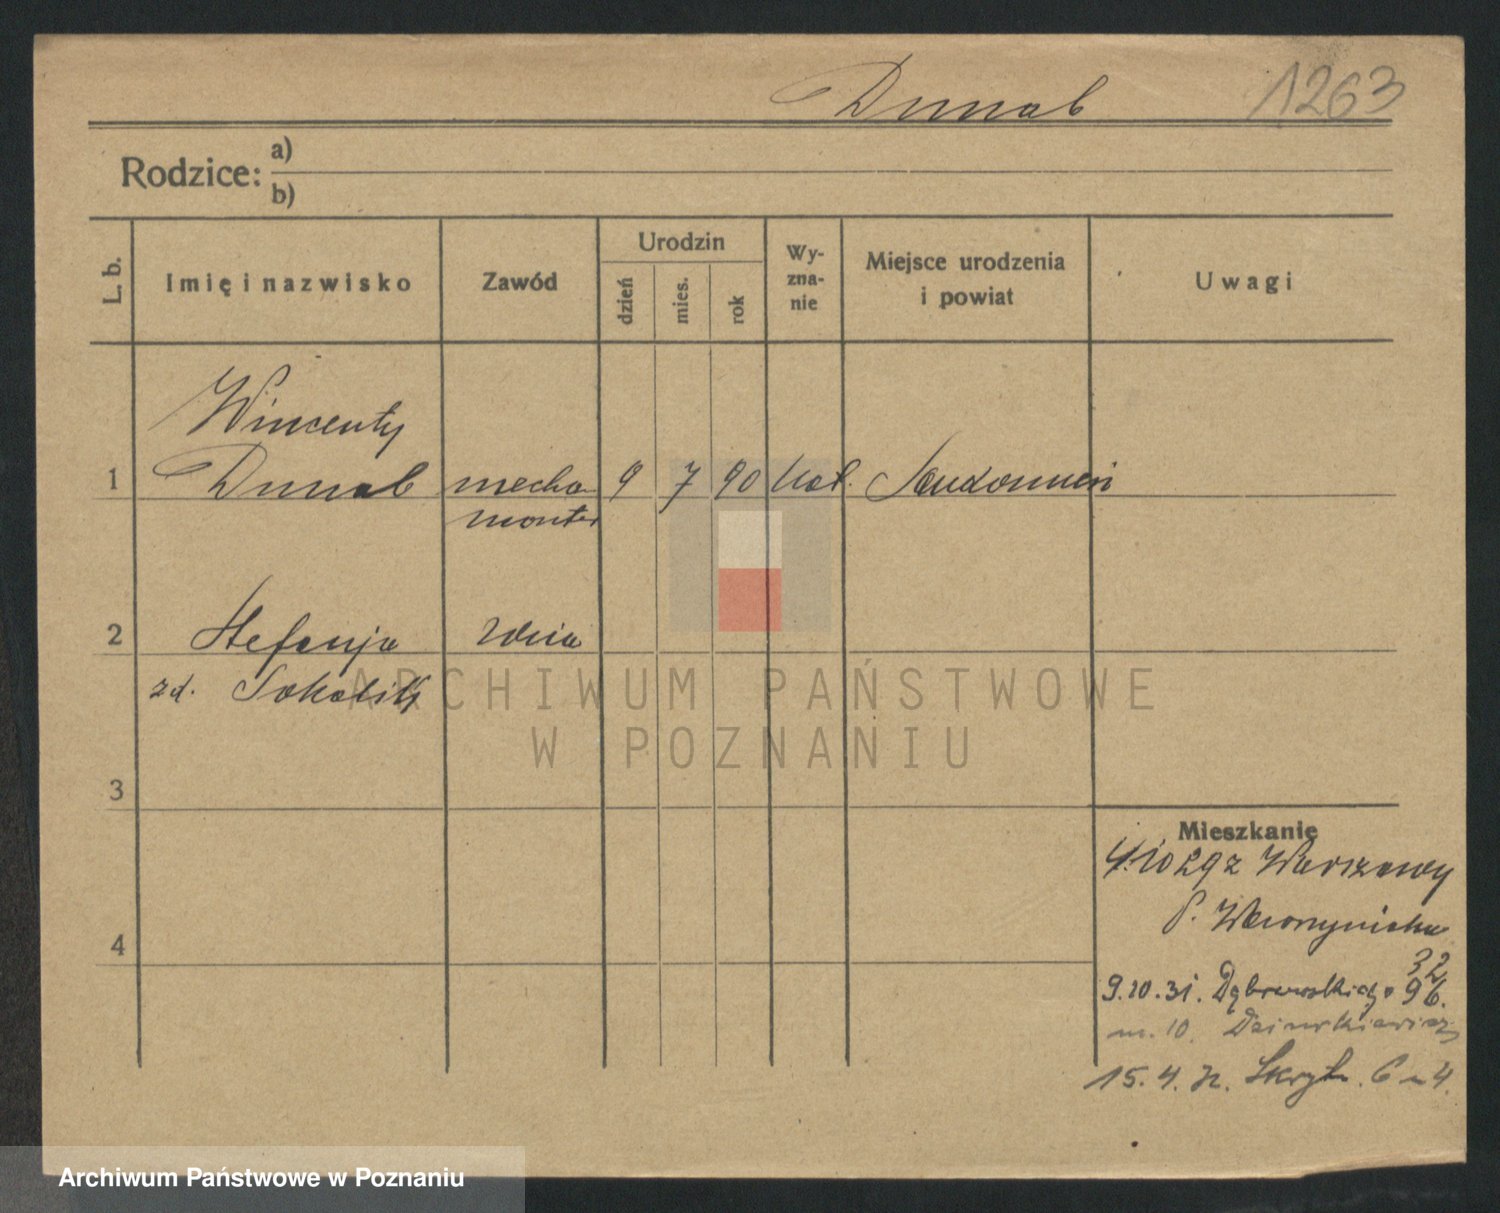 Dunab 1263
Rodzice: a)
b)
L. b.
Imię i nazwisko
Zawód
Urodzin
dzień
mies.
rok
Wy-
zna-
nie
Miejsce urodzenia
i powiat
Uwagi
Wincenty
1 Dunab mecha 9 7 90 kat. Sandomierz
monter
2 Stefanja
zd.
ARCHIWUM PAŃSTWOWE
W POZNANIU
3
4
Mieszkanie
4.10 29 z Warszawy
P. 32
9.10.31. Dąbrowskiego 96.
m. 10.
15.4. 6 4.
Archiwum Państwowe w Poznaniu